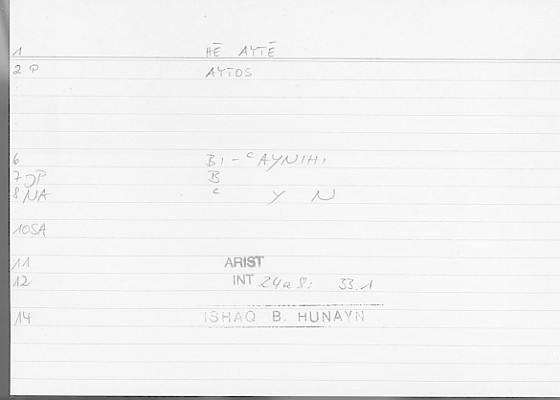 1 HĒ AYTĒ
2 P AYTOS
6 BI-ᶜAYNIHI
7 JP B
8 NA ᶜ Y N
10 SA
11 ARIST
12 INT 24a8: 33.1
14 ISHAQ B. HUNAYN